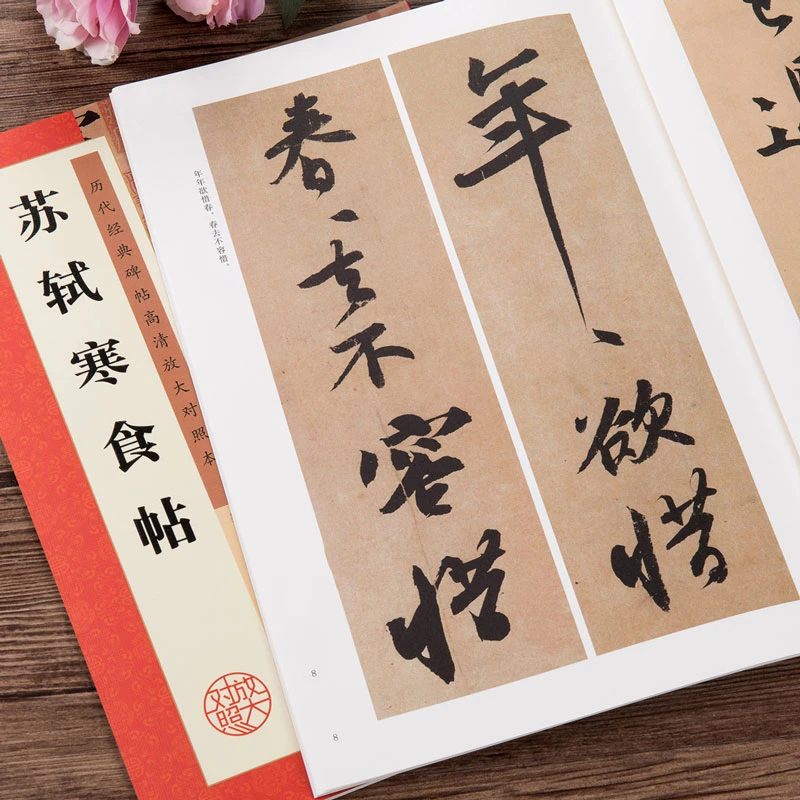 苏轼寒食帖
历代经典碑帖高清放大对照本
放大对照
年、欲惜
春、去不容惜
年年欲惜春，春去不容惜。
8
8